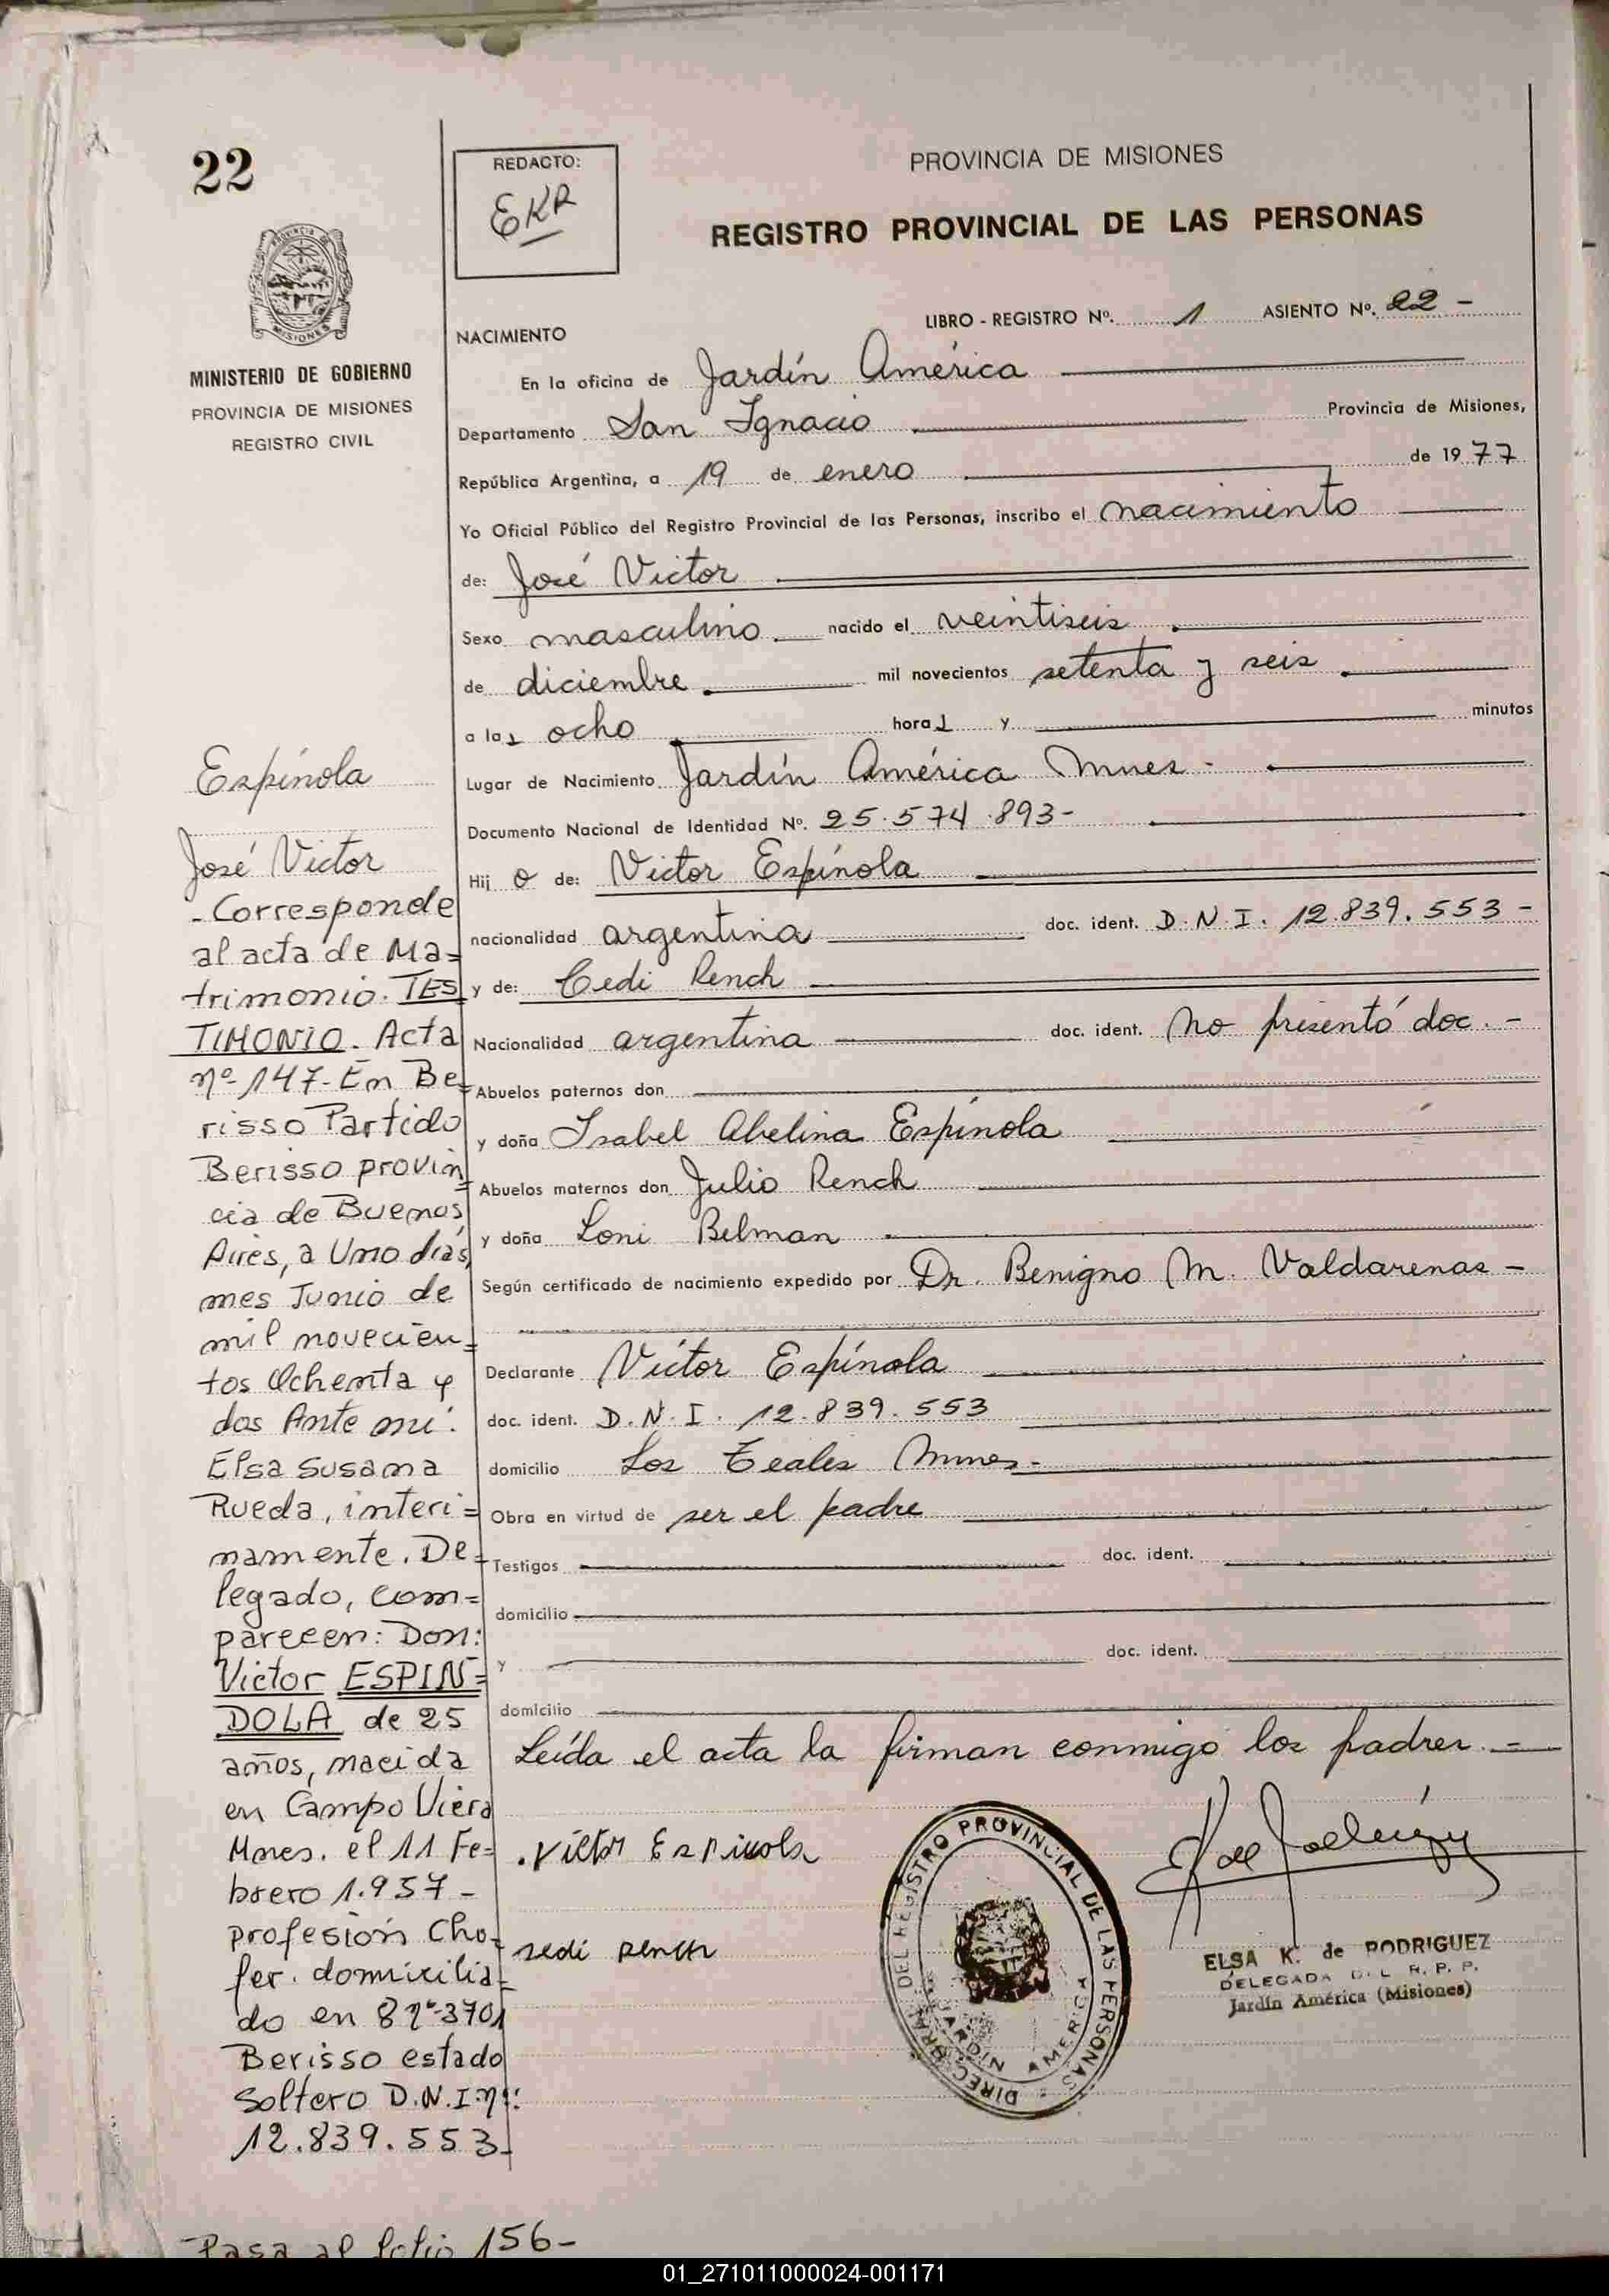 22
PROVINCIA DE MISIONES
MINISTERIO DE GOBIERNO
PROVINCIA DE MISIONES
REGISTRO CIVIL
Espínola
José Victor
- Corresponde
al acta de Ma=
trimonio. TES
TIMONIO. Acta
nº 147- En Be=
risso Partido
Berisso provin=
cia de Buenos
Aires, a Uno días
mes Junio de
mil novecien=
tos Ochenta y
dos Ante mi:
Elsa Susana
Rueda, interi=
namente. De=
legado, com=
parecen: Don:
Victor ESPIN=
DOLA de 25
años, nacida
en Campo Viera
Mnes. el 11 Fe=
brero 1.957-
profesión Cho=
fer. domicilia=
do en 8 nº 3701
Berisso estado
Soltero D.N.I. nº:
12.839.553-
Pasa al folio 156-
REDACTO:
EKR
PROVINCIA DE MISIONES
REGISTRO PROVINCIAL DE LAS PERSONAS
LIBRO - REGISTRO Nº. 1 ASIENTO Nº. 22 -
NACIMIENTO
En la oficina de Jardín América
Departamento San Ignacio Provincia de Misiones,
República Argentina, a 19 de enero de 1977
Yo Oficial Público del Registro Provincial de las Personas, inscribo el nacimiento
de: José Victor
Sexo masculino nacido el veintiseis
de diciembre mil novecientos setenta y seis
a las ocho horas y minutos
Lugar de Nacimiento Jardín América Mnes -
Documento Nacional de Identidad Nº. 25.574.893-
Hij o de: Victor Espínola
nacionalidad argentina doc. ident. D.N.I. 12.839.553 -
y de: Cedi Rench
Nacionalidad argentina doc. ident. No presentó doc. -
Abuelos paternos don
y doña Isabel Abelina Espínola
Abuelos maternos don Julio Rench
y doña Loni Belman
Según certificado de nacimiento expedido por Dr. Benigno M. Valdarenas -
Declarante Víctor Espínola
doc. ident. D.N.I. 12.839.553
domicilio Los Teales Mnes -
Obra en virtud de ser el padre
Testigos doc. ident.
domicilio
y doc. ident.
domicilio
Leída el acta la firman conmigo los padres. -
Victor Espinola
sedi rench
DIREC. GRAL. DEL REGISTRO PROVINCIAL DE LAS PERSONAS
JARDIN AMERICA
ELSA K. de RODRIGUEZ
DELEGADA DEL R. P. P.
Jardín América (Misiones)
01_271011000024-001171